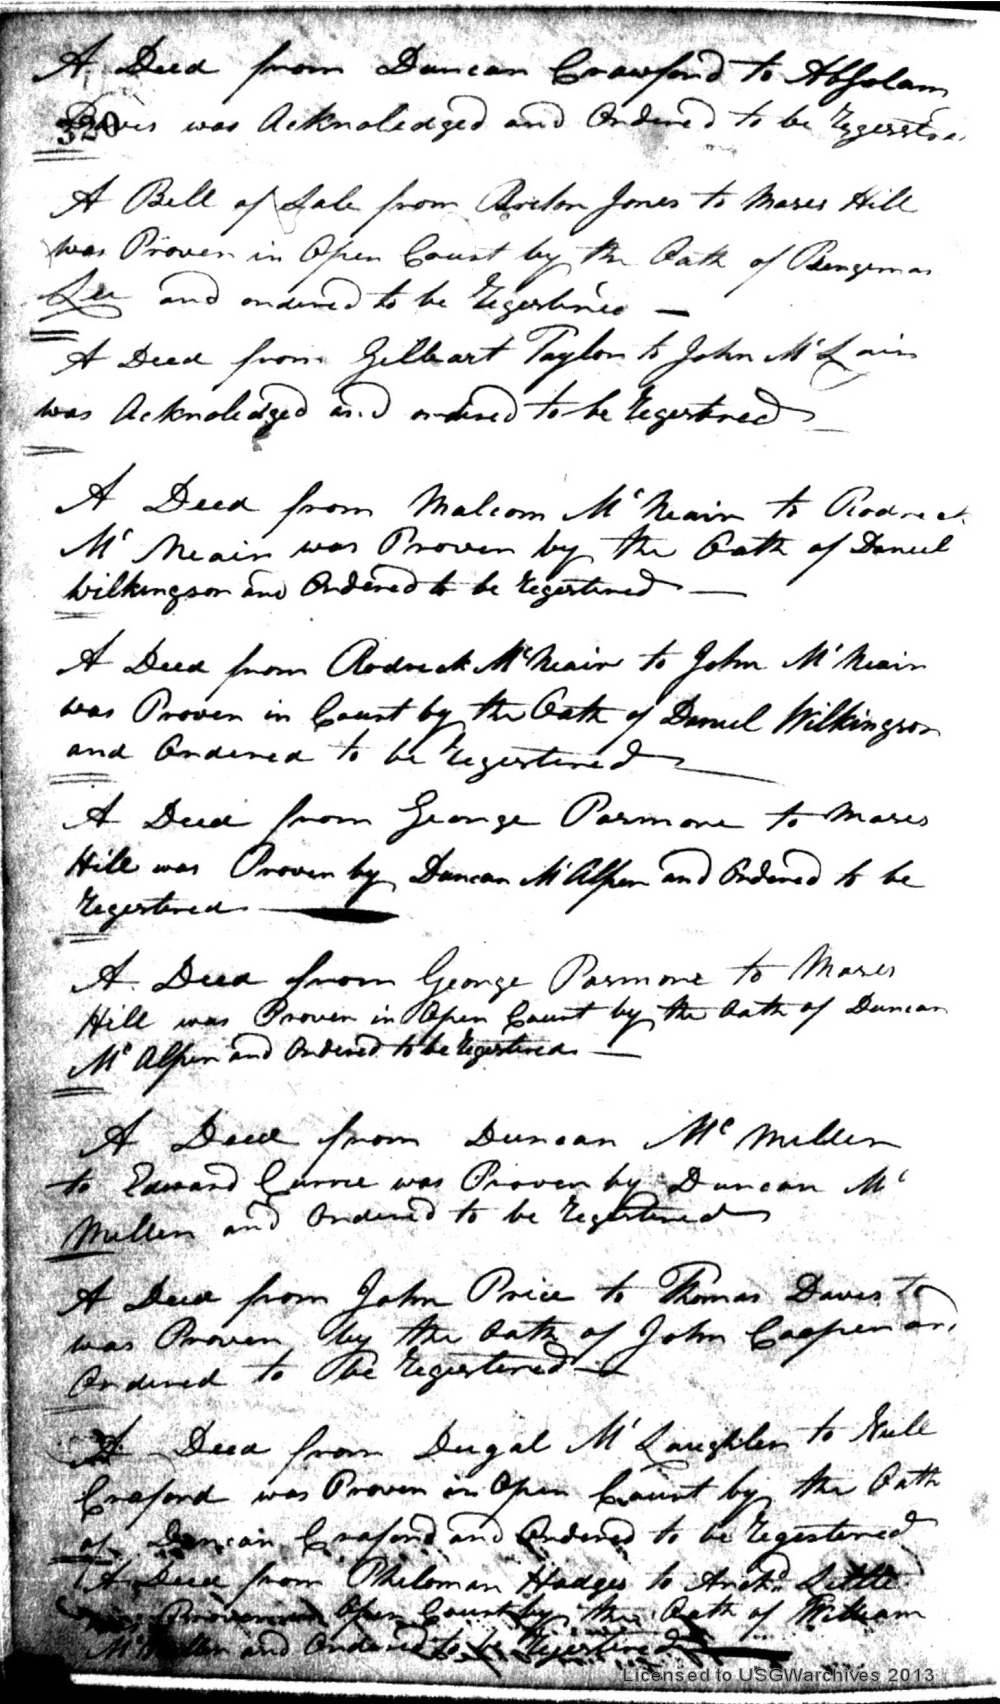 A Deed from Duncan Crawford to Absolam
320
was Acknoledged and Ordered to be Regerstred
A Bell of Sale from Jones to Mares Hill
was Proven in Open Court by the Oath of
Lee and ordered to be Regestred
A Deed from Gilbeart Taylor to John McLain
was Acknoledged and ordered to be Regestered
A Deed from Malcom McNeair to Rodreck
McNeair was Proven by the Oath of Daniel
Wilkingson and Ordered to be Regestered
A Deed from Rodreck McNeair to John McNeair
was Proven in Court by the Oath of Daniel Wilkingson
and Ordered to be Regestered
A Deed from George Parmore to Mares
Hill was Proven by Duncan McAlpen and Ordered to be
Regestered
A Deed from George Parmore to Mares
Hill was Proven in Open Court by the Oath of Duncan
McAlpen and Ordered to be Regestered
A Deed from Duncan Mc Millen
to Edward Currie was Proven by Duncan Mc
Millen and Ordered to be Regestered
A Deed from John Price to Thomas Daves to
was Proven by the Oath of John Cooper and
Ordered to be Regestered
A Deed from Dugal McLaughlen to Null
Craford was Proven in Open Court by the Oath
of Duncan Craford and Ordered to be Regestered
A Deed from Philoman Hodges to Archd Little
was Proven in Open Court by the Oath of William
McMullen and Ordered to be Regestered
Licensed to USGWarchives 2013